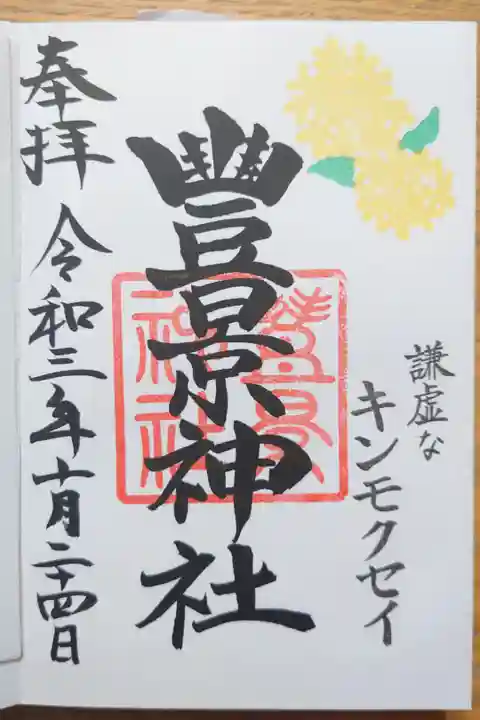 謙虚な
キンモクセイ
豐景神社
豊景
神社
奉拝
令和三年十月二十四日